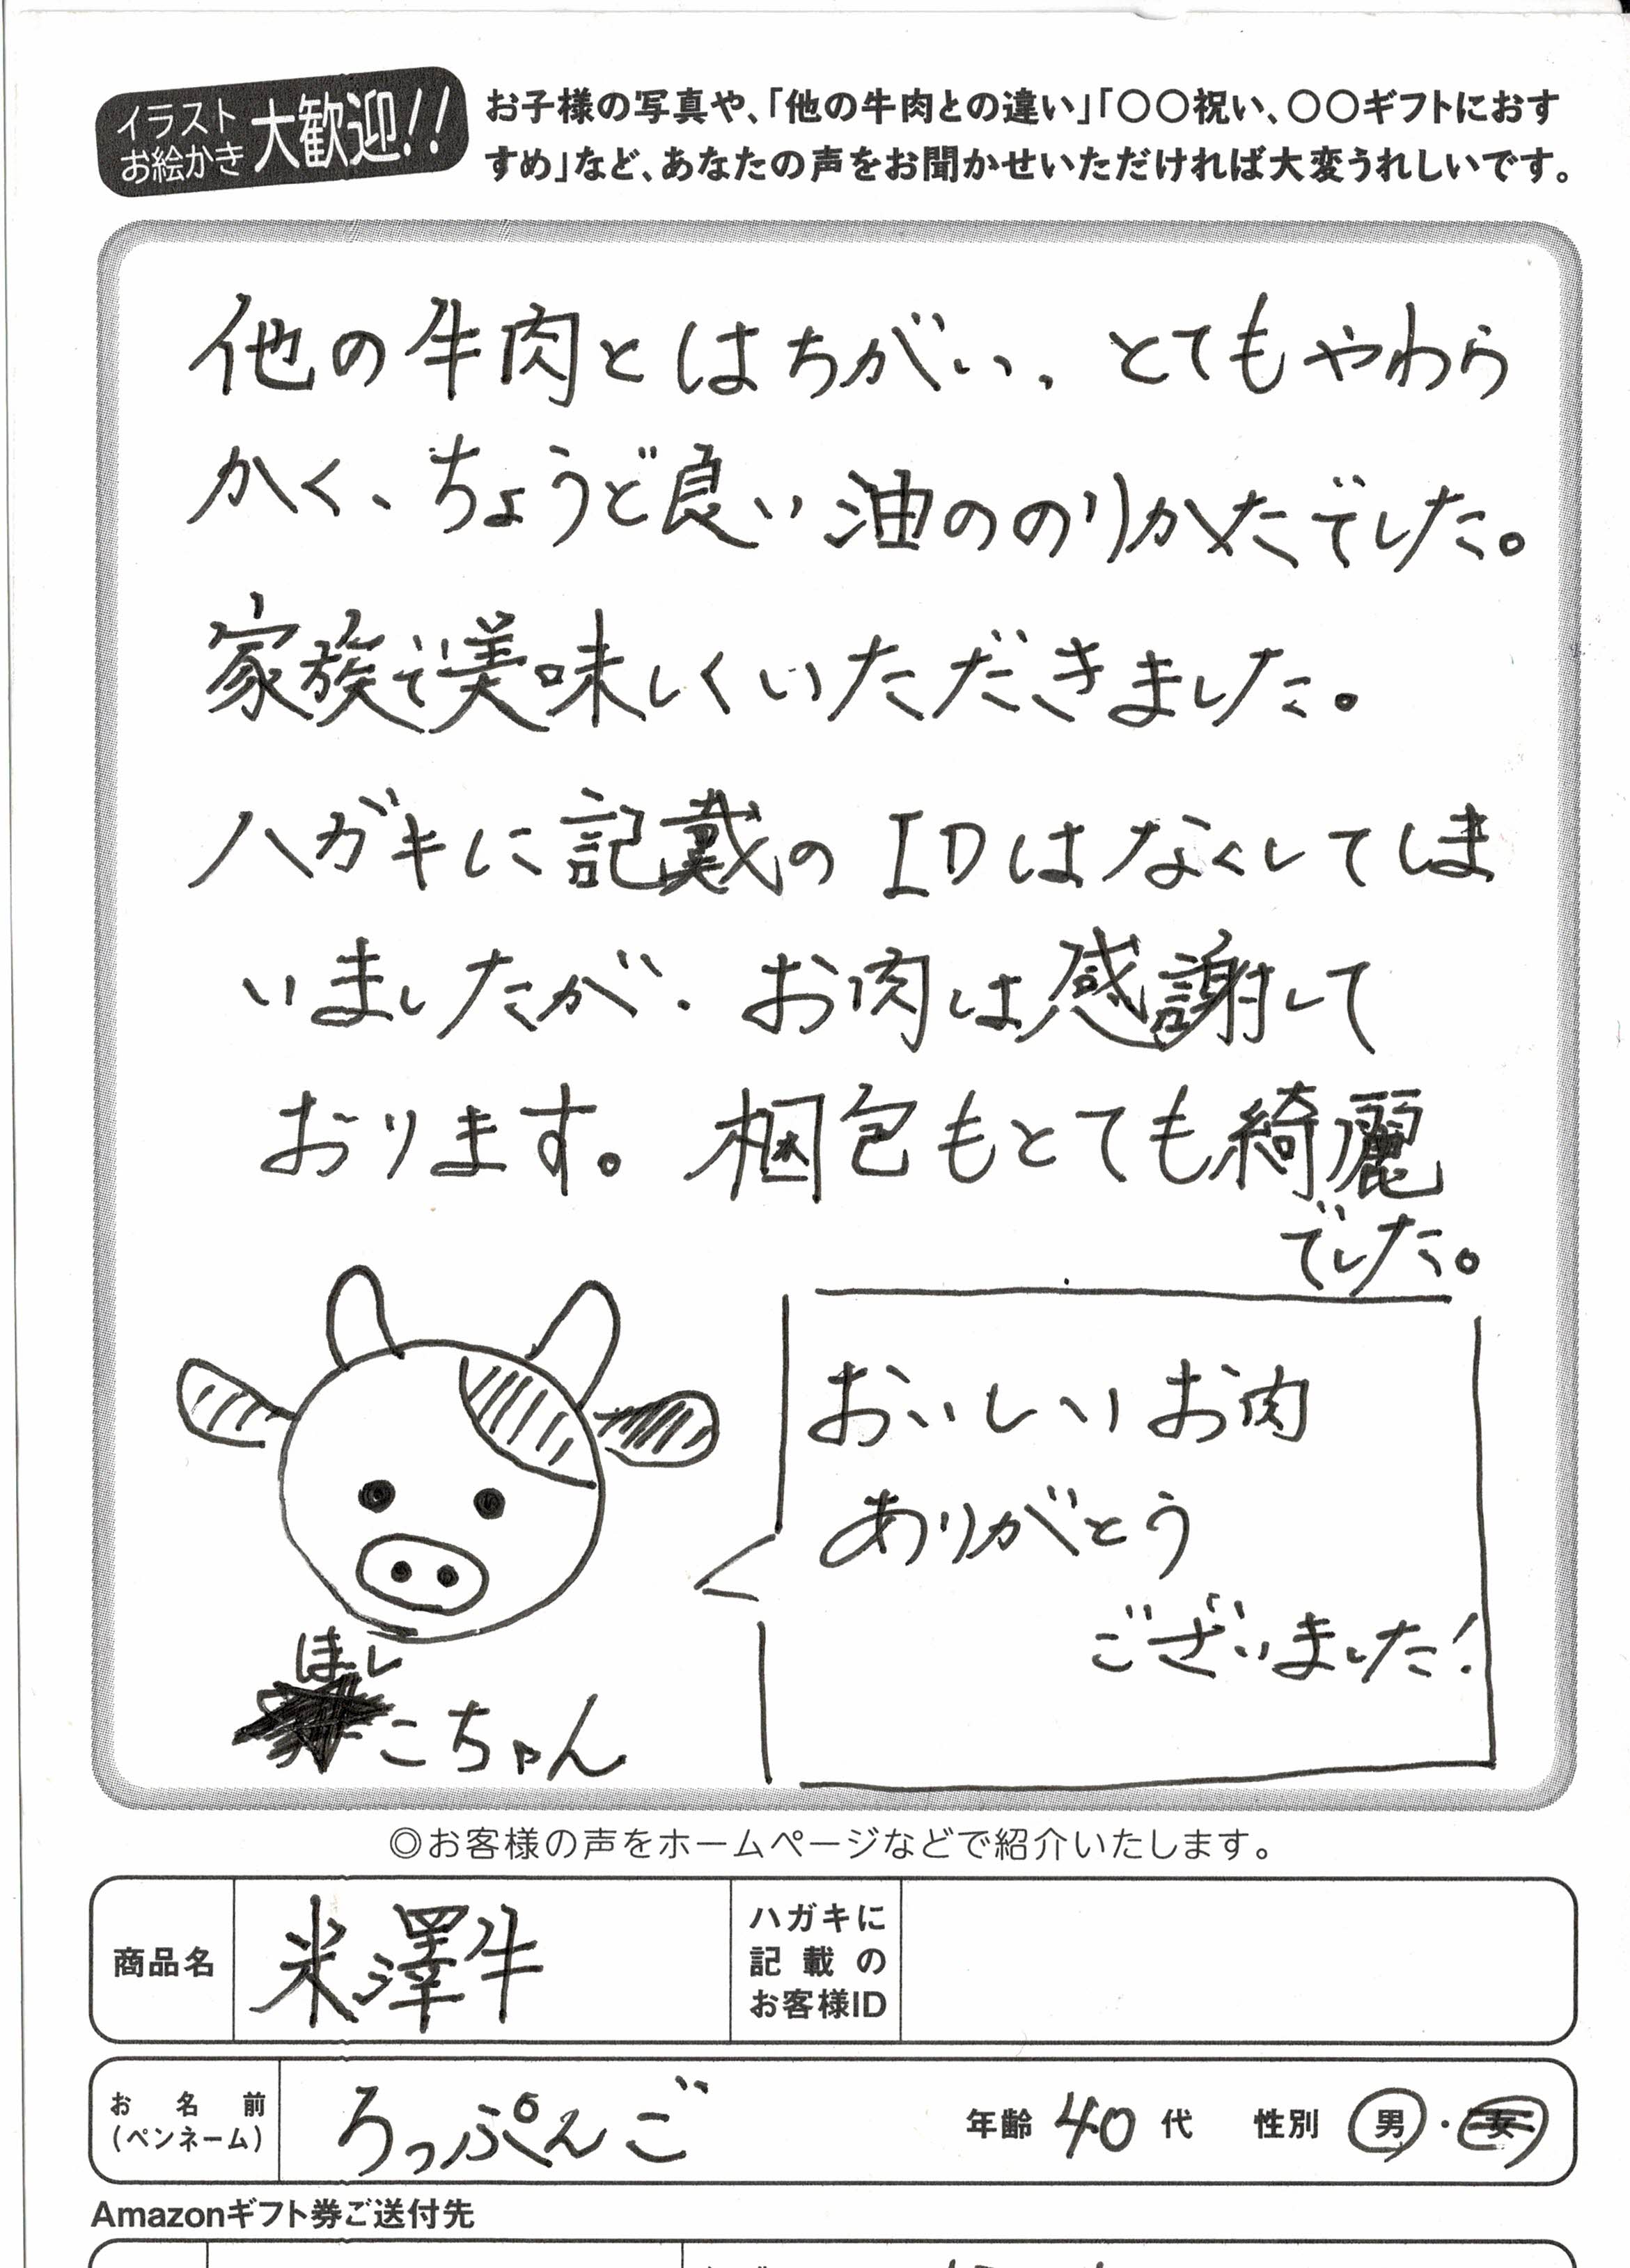 イラスト
お絵かき
大歓迎!!
お子様の写真や、「他の牛肉との違い」「〇〇祝い、〇〇ギフトにおす
すめ」など、あなたの声をお聞かせいただければ大変うれしいです。
他の牛肉とはちがい、とてもやわら
かく、ちょうど良い油ののりかたでした。
家族で美味しくいただきました。
ハガキに記載のIDはなくしてしま
いましたが、お肉は感謝して
おります。梱包もとても綺麗
でした。
おいしいお肉
ありがとう
ございました!
ほし
こちゃん
◎お客様の声をホームページなどで紹介いたします。
商品名 米澤牛
ハガキに
記載の
お客様ID
お名前
(ペンネーム)
ろっぷんご 年齢 40代 性別 男・女
Amazonギフト券ご送付先